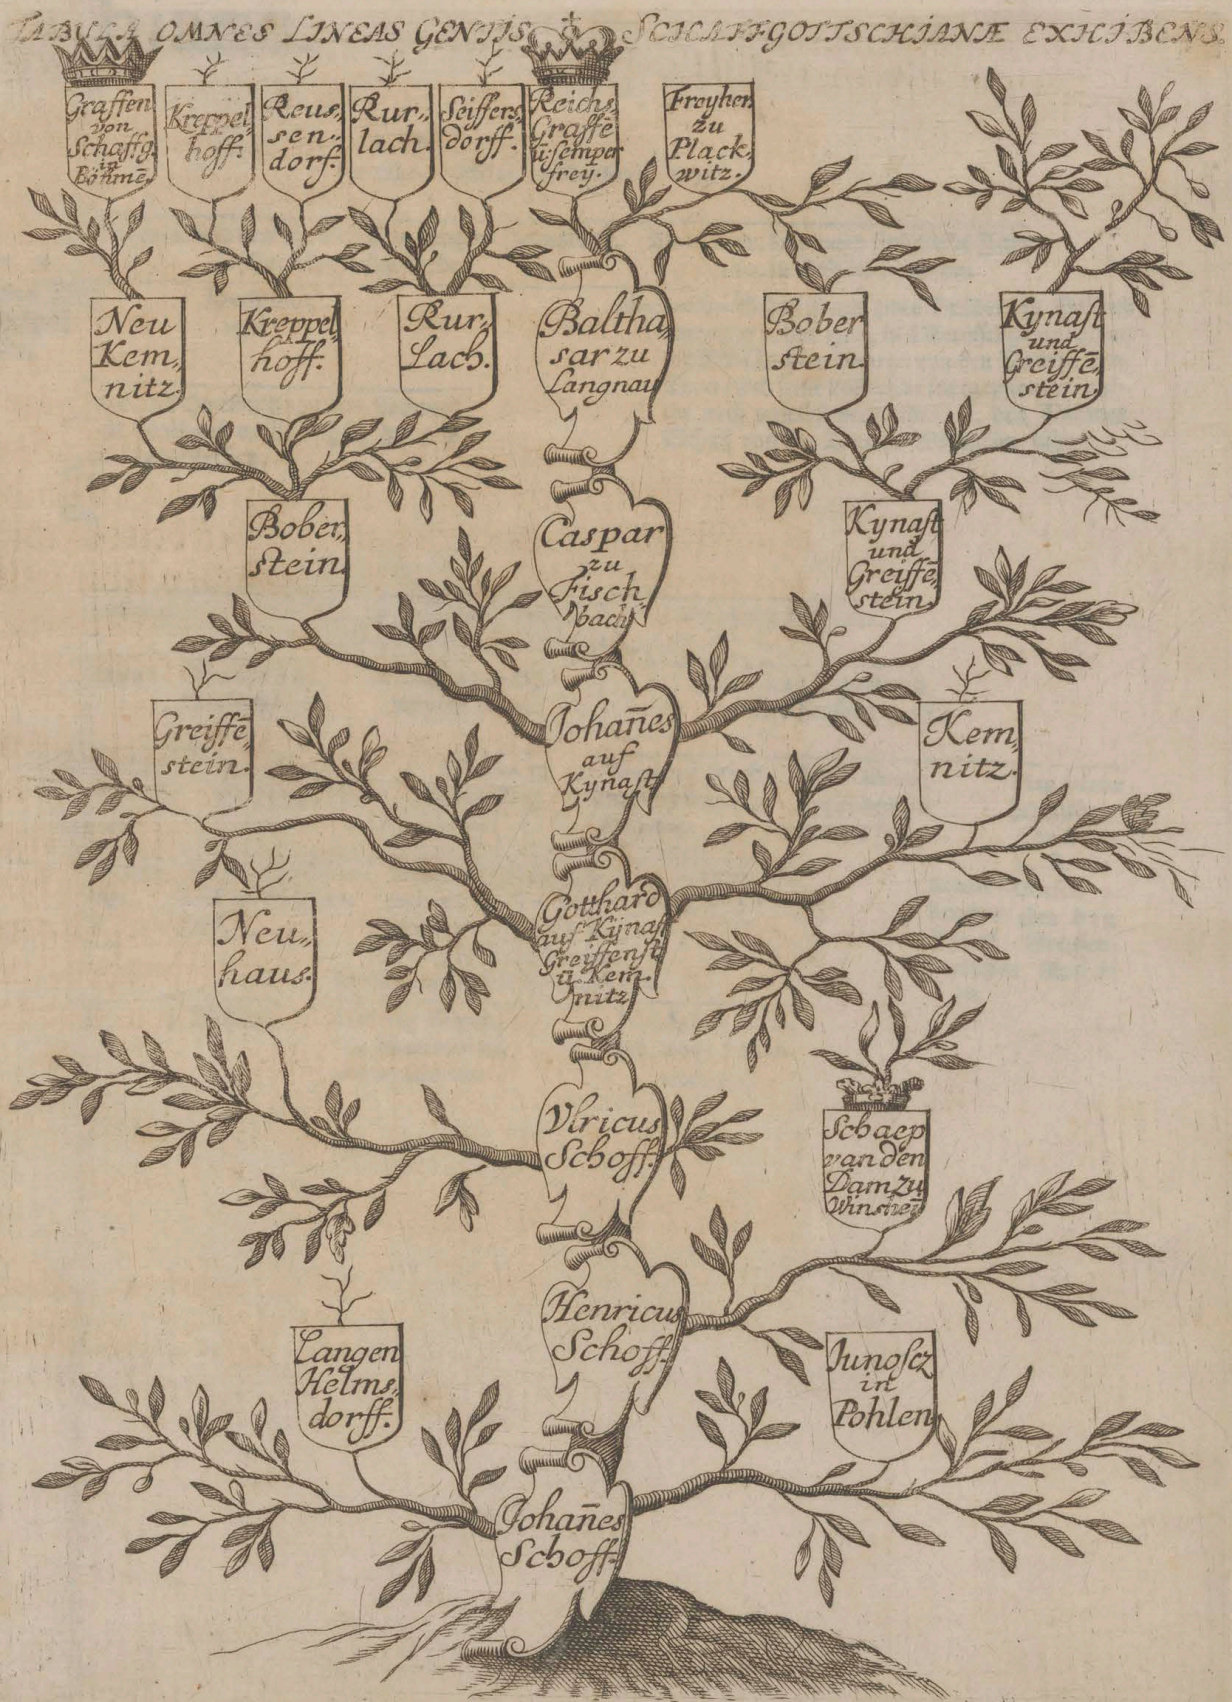 TABULA OMNES LINEAS GENTIS SCHAFFGOTTSCHIANÆ EXHIBENS.
Graffen
von
Schaffg.
in
Böhmē.
Kreppel
hoff.
Reus,,
sen,,
dorf.
Rur,,
lach.
Seiffers,
dorff.
Reichs,
Graffē
ū semper
frey.
Freyher
zu
Plack,
witz.
Neu
Kem,,
nitz.
Kreppel
hoff.
Rur,,
Lach.
Baltha,
sar zu
Langnau
Bober
stein.
Kynast
und
Greiffē,
stein.
Bober,,
stein.
Caspar
zu
Fisch,,
bach
Kynast
und
Greiffē,
stein.
Greiffē,
stein.
Johan̄es
auf
Kynast
Kem,,
nitz.
Neu,,
haus.
Gotthard
auf Kynast
Greiffenst
ū. Kem.
nitz
Vlricus
Schoff.
Schaep
van den
Dam zu
Henricus
Schoff.
Langen
Helms,
dorff.
Junoscz
in
Pohlen
Johan̄es
Schoff.